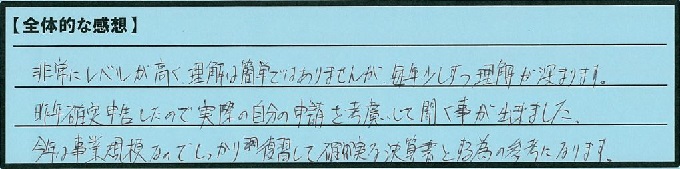 【全体的な感想】
非常にレベルが高く、理解は簡単ではありませんが、毎年少しずつ理解が深まります。
昨年確定申告したので実際の自分の申請を考慮して聞く事が出来ました。
今年は事業規模なのでしっかり復習して確実な決算書とる為の参考になります。